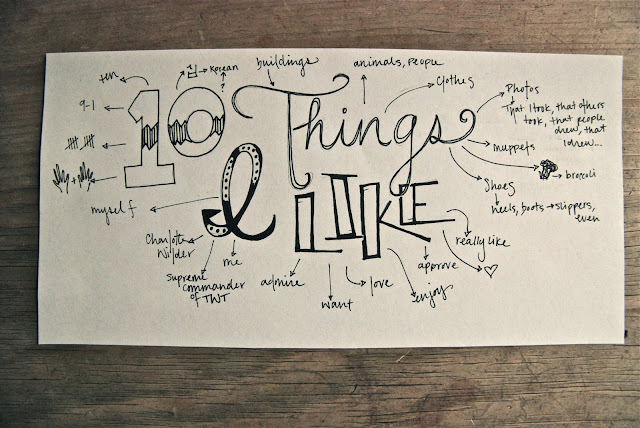 10 Things
I LIKE
ten
9-1
십
Korean
?
buildings
animals, people
clothes
Photos
That I took, that others
took, that people
drew, that
I drew...
muppets
broccoli
Shoes
heels, boots
slippers,
even
myself
Charlotte
Wilder
me
supreme
commander
of TWT
admire
want
love
enjoy
approve
really like